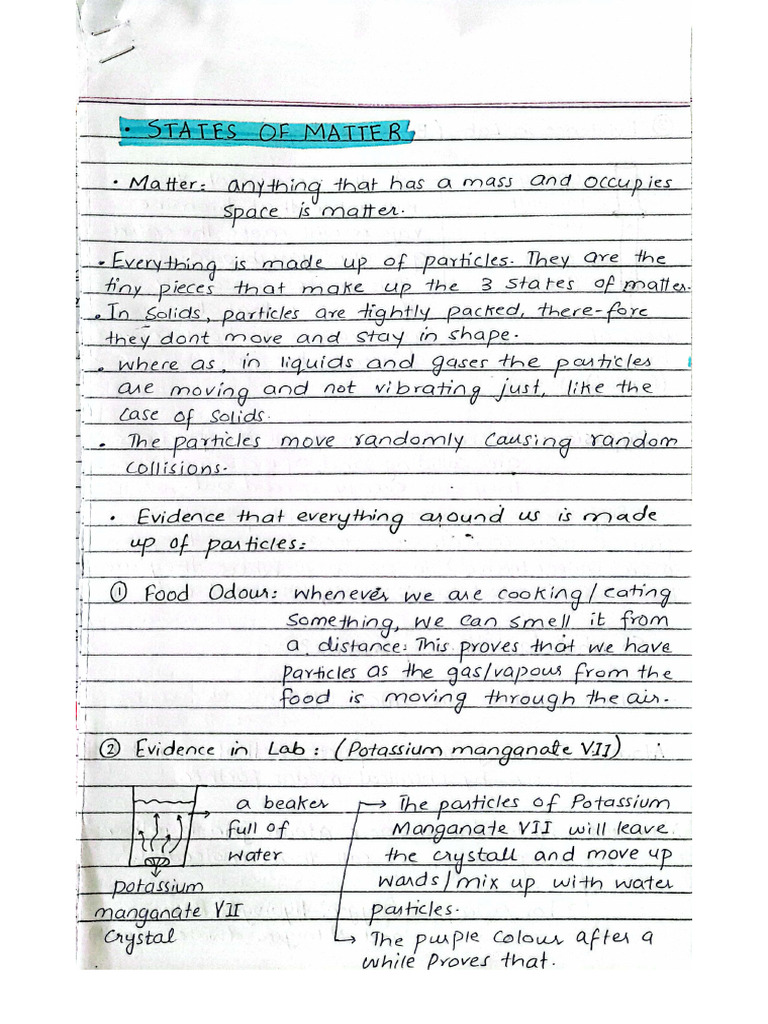 • STATES OF MATTER
• Matter: anything that has a mass and occupies
space is matter.
• Everything is made up of particles. They are the
tiny pieces that make up the 3 states of matter.
• In solids, particles are tightly packed, there-fore
they dont move and stay in shape.
• where as, in liquids and gases the particles
are moving and not vibrating just, like the
case of solids.
• The particles move randomly causing random
collisions.
• Evidence that everything around us is made
up of particles:
① Food Odour: whenever we are cooking/eating
something, we can smell it from
a distance. This proves that we have
particles as the gas/vapour from the
food is moving through the air.
② Evidence in Lab: (Potassium manganate VII)
a beaker
full of
water
potassium
manganate VII
crystal
→ The particles of Potassium
Manganate VII will leave
the crystall and move up
wards/mix up with water
particles.
→ The purple colour after a
while proves that.